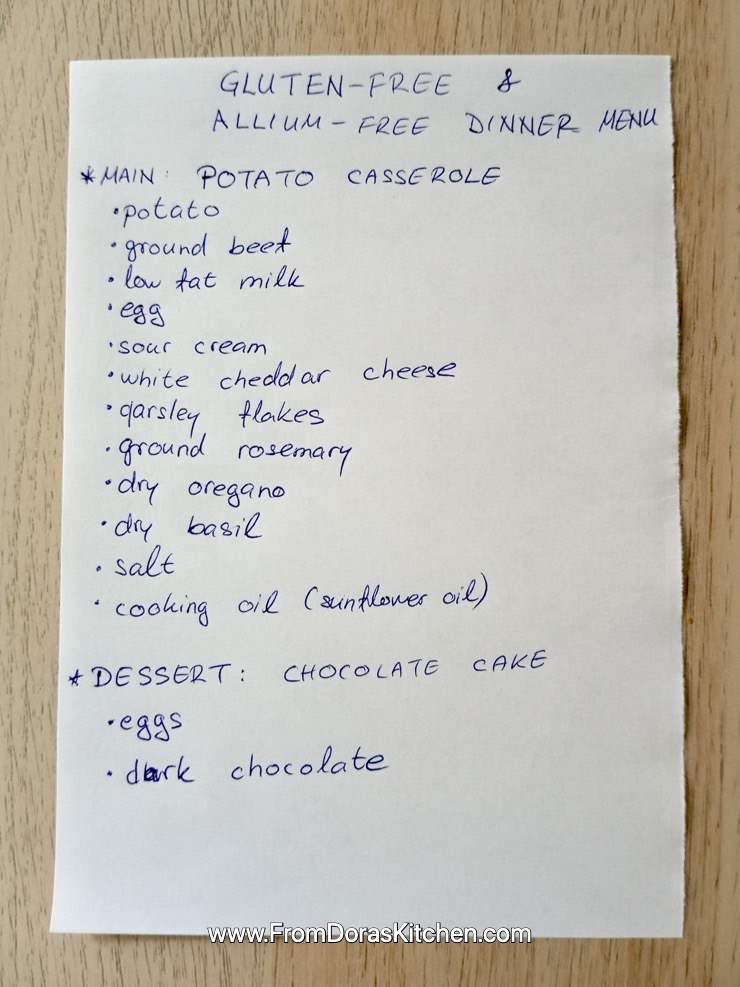 GLUTEN-FREE &
ALLIUM-FREE DINNER MENU
*MAIN: POTATO CASSEROLE
•potato
•ground beef
•low fat milk
•egg
•sour cream
•white cheddar cheese
•parsley flakes
•ground rosemary
•dry oregano
•dry basil
•salt
•cooking oil (sunflower oil)
*DESSERT: CHOCOLATE CAKE
•eggs
•dark chocolate
www.FromDorasKitchen.com